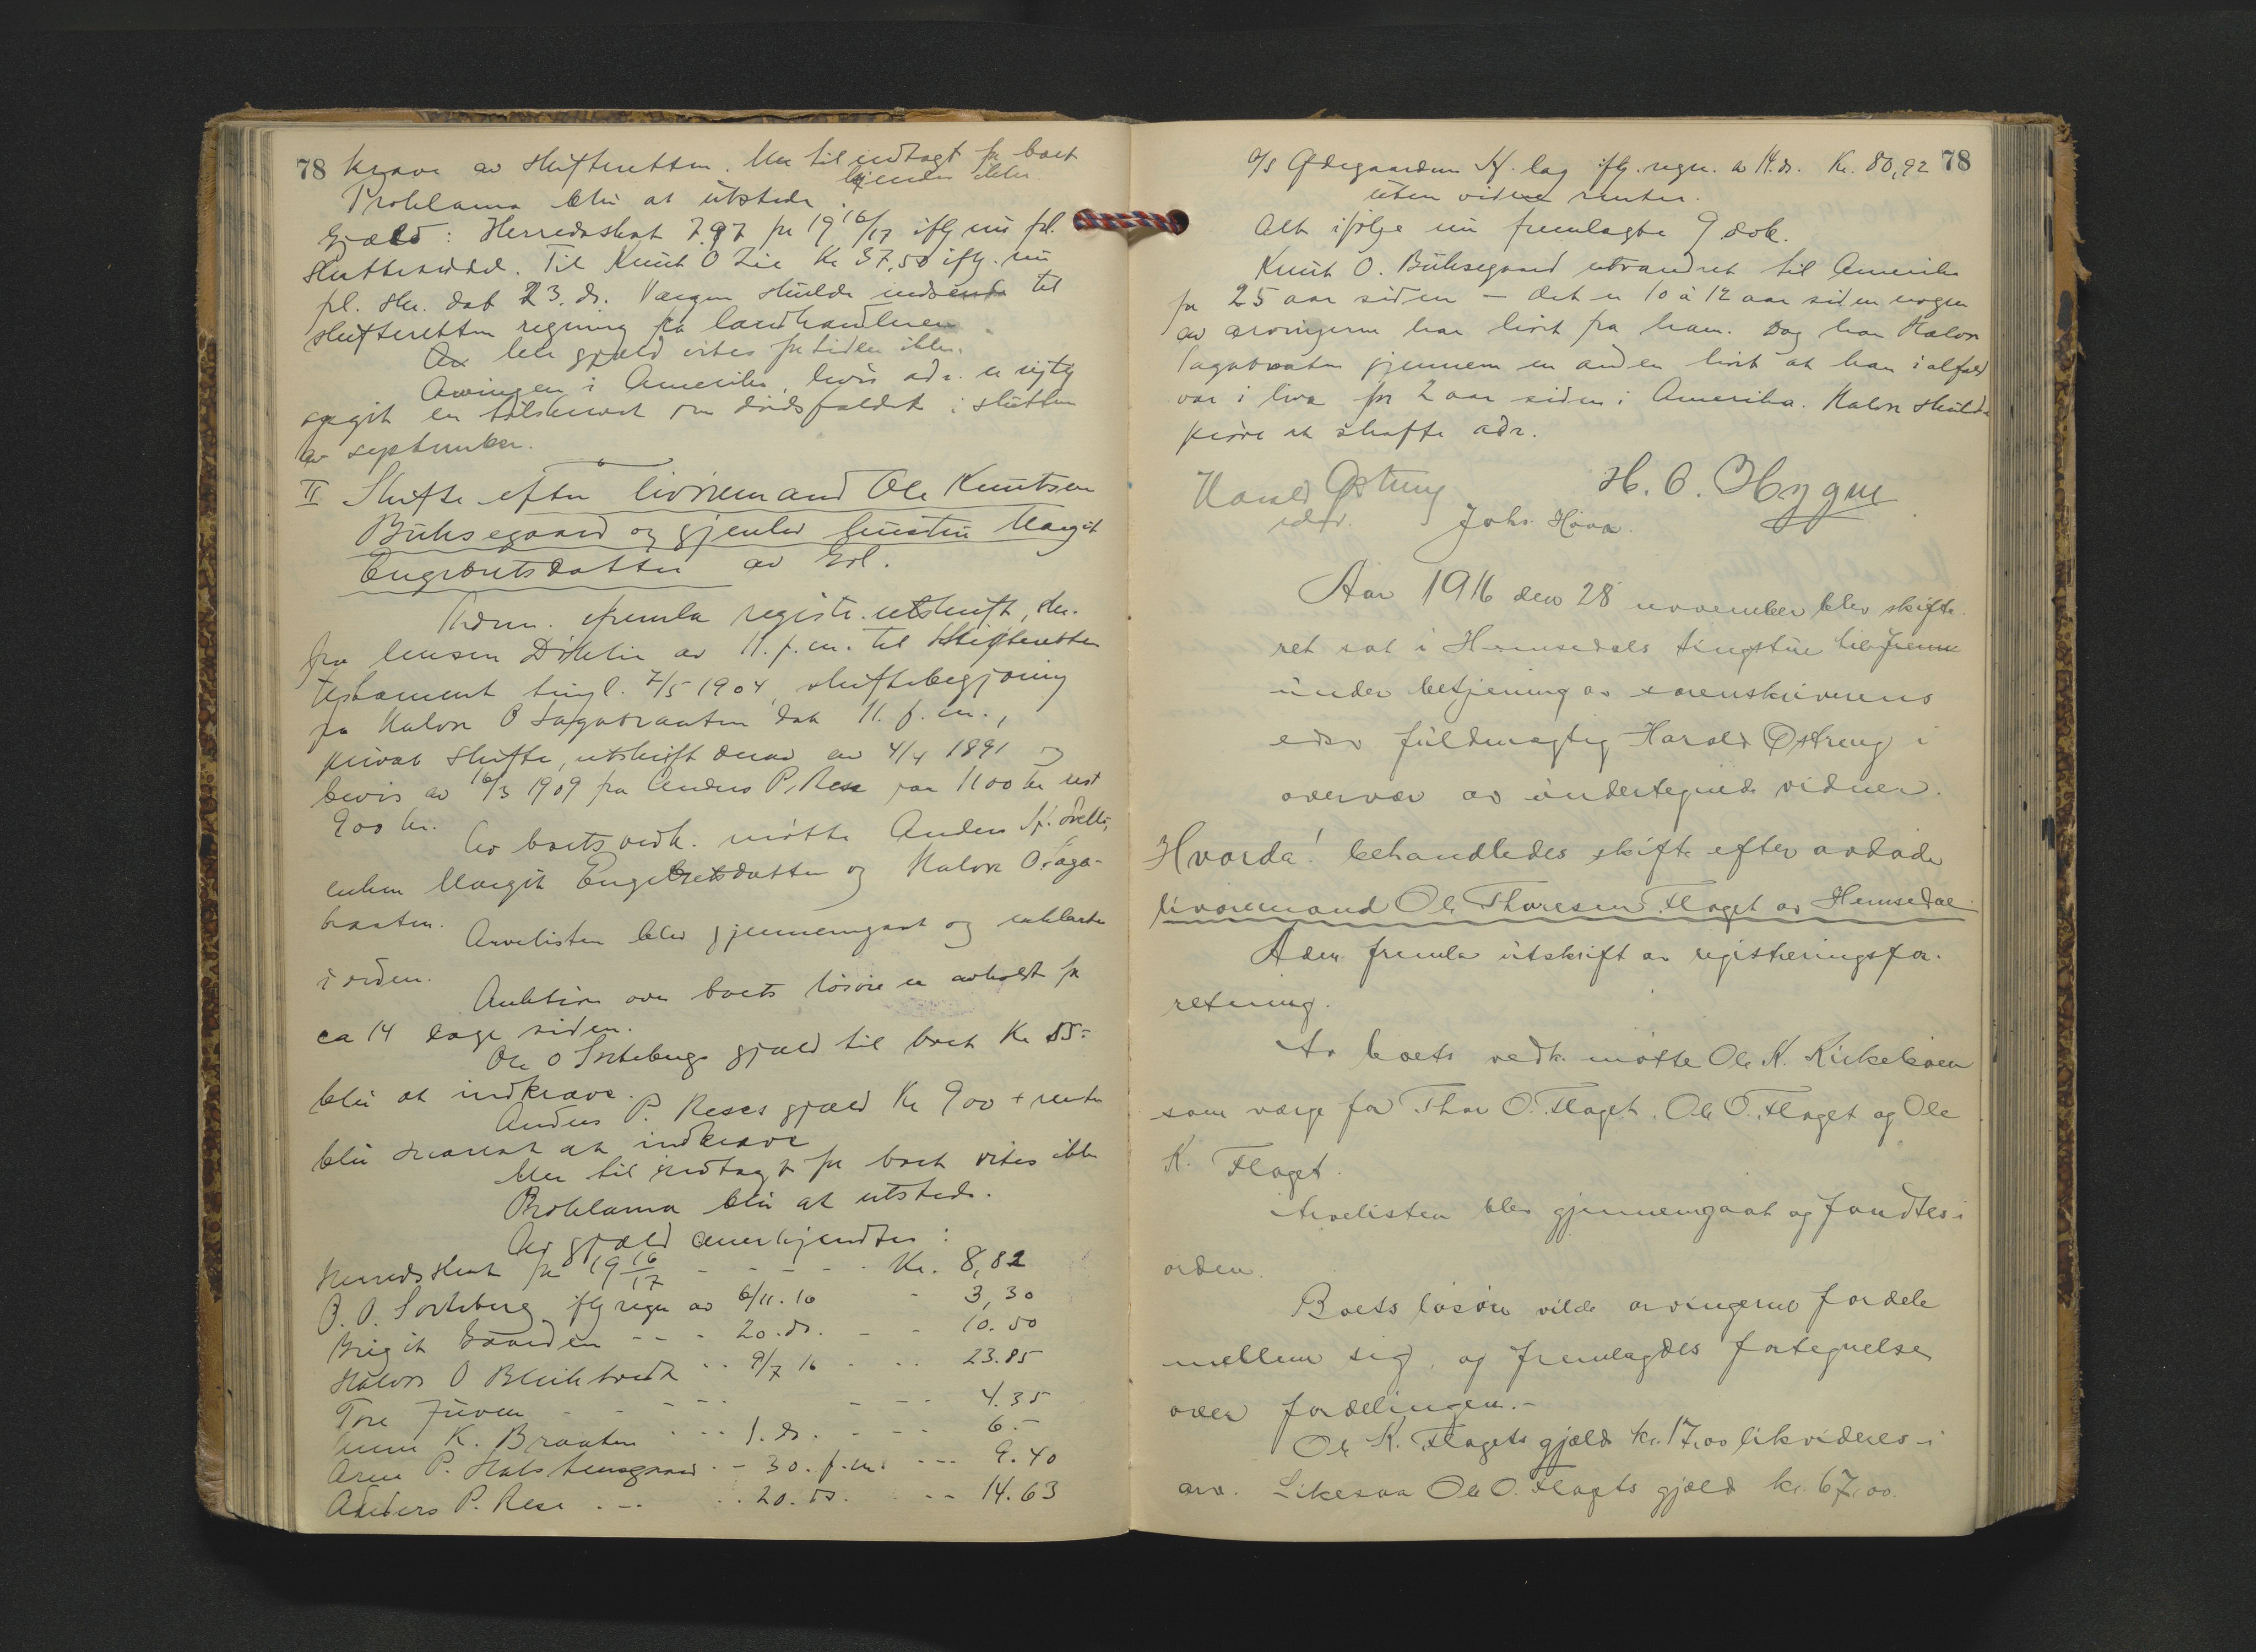 78 kræve av skifteretten. Mer til indtægt for boet
kjendes ikke.
Proklama blir at utstede.
Gjæld: Herredsskat 7.97 for 19 16/17 iflg nu frl.
skatteseddel. Til Knut O Lie Kr 37,50 iflg. nu
frl. skr. dat 23. ds. Værgen skulde indsende til
skifteretten regning fra landhandleren.
Av hele gjæld vites for tiden ikke.
Arvingen i Amerika, hvis adr. er rigtig
opgit er tilskrevet om dødsfaldet i slutten
av september.
II Skifte efter livøremand Ole Knutsen
Buhsegaard og gjenlev hustru Margit
Engebretsdatter av Gol.
Adm. fremla registr. utskrift, skr.
fra lensm Døhlin av 11. f.m. til skifteretten
testament tingl. 7/5 1904, skiftebegjæring
fra Halvor O Sagabraaten dat 11. f.m.,
privat skifte, utskrift derav av 4/4 1891 og
bevis av 16/3 1909 fra Anders P. Rese paa 1100 kr rest
900 kr.
Av boets vedk. møtte Anders
enken Margit Engebretsdatter og Halvor O. Saga-
braaten.
Arvelisten blev gjennemgaat og erklærtes
i orden.
Auktion over boets løsøre er avholdt for
ca 14 dage siden.
Ole O Sorteberg gjæld til boet Kr 55:-
blir at indkræve.
Anders P. Reses gjæld Kr 900 + renter
blir snarest at indkræve
Mer til indtægt for boet vites ikke
Proklama blir at utstede.
Av gjæld anerkjendtes:
Herredsskat for 19 16/17 - - - - - Kr. 8,82
O. O. Sorteberg iflg regn av 6/11. 16 - 3,30
Birgit - - - 20. ds. - - 10.50
Halvor O - - 9/7 16 - - 23.85
Tore Juven - - - - - - - 4.35
Anne K. Braaten - - - 1. ds. - - - 6.-
Arne P. Halstensgaard - - 30. f.m. - - - 9.40
Anders P. Rese - - - - 20. ds. - - 14.63
A/S Ødegaardens H. lag iflg. regn. av 14. ds. Kr. 80,92 78
uten videre renter.
Alt ifølge nu fremlagte 9 dok.
Knut O. Buhsegaard utvandret til Amerika
for 25 aar siden - det er 10 à 12 aar siden nogen
av arvingerne har hørt fra ham. Dog har Halvor
Sagabraaten gjennem en anden hørt at han i alfald
var i live for 2 aar siden i Amerika. Halvor skulde
prøve at skaffe adr.
Harald Østreng H. O. Hygne
edsv. Johs. Hova.
Aar 1916 den 28 november blev skifte-
ret sat i Hemsedals tingstue
under betjening av sorenskriverens
edsv fuldmægtig Harald Østreng i
overvær av undertegnede vidner.
Hvorda! behandledes skifte efter avdøde
livøremand Ole Thoresen Flaget av Hemsedal
Adm. fremla utskrift av registreringsfor-
retning.
Av boets vedk. møtte Ole K. Kirkebøen
som værge for Thor O. Flaget, Ole O. Flaget og Ole
K. Flaget.
Arvelisten blev gjennemgaat og fandtes i
orden.
Boets løsøre vilde arvingerne fordele
mellem sig, og fremlagdes fortegnelse
over fordelingen.-
Ole K. Flagets gjæld kr. 17,00 likvideres i
arv. Likesaa Ole O. Flagets gjæld kr. 67,00.